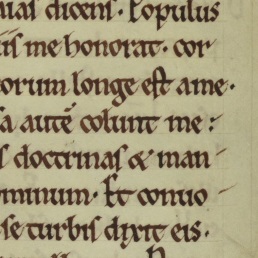 aias dicens. Populus
iis me honorat. cor
orum longe est a me.
a autē colunt me:
s doctrinas & man
ominum. Et conuo
se turbis dixit eis.